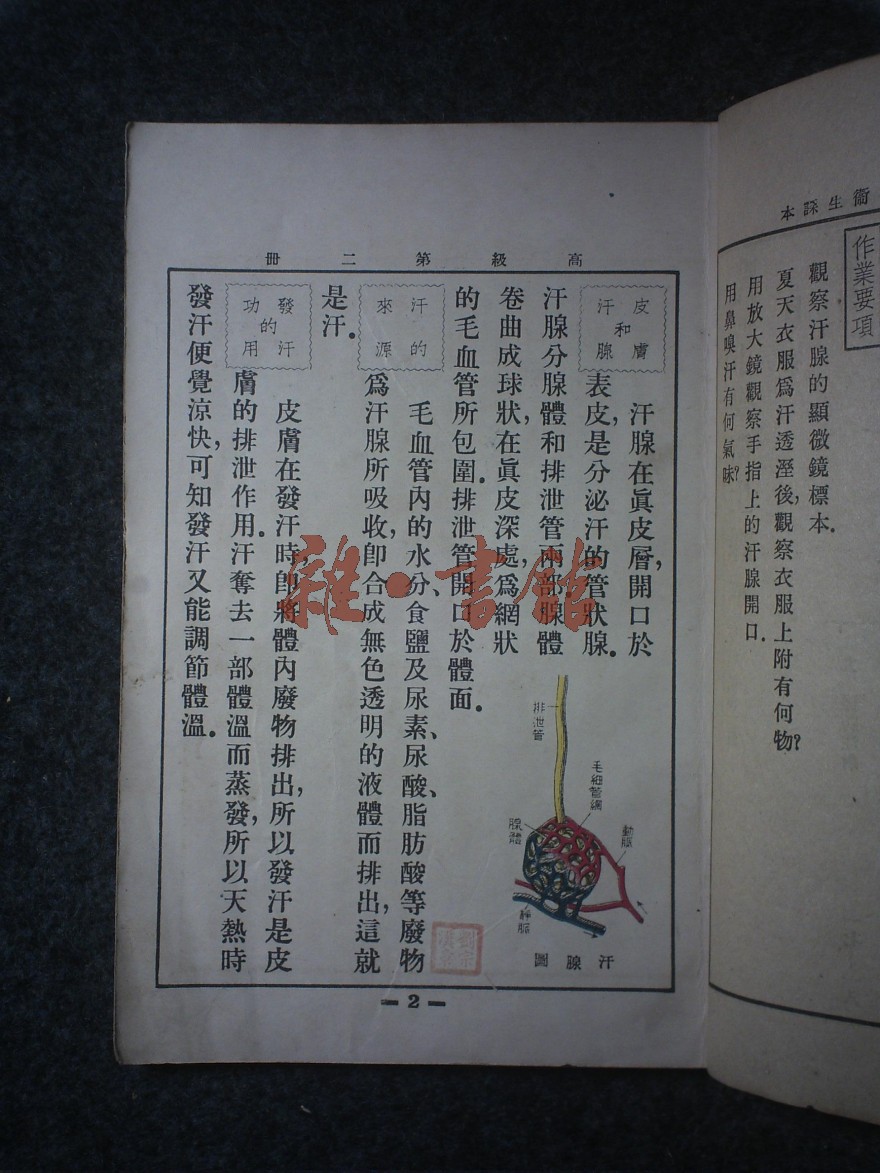 衞生課本
作業要項
觀察汗腺的顯微鏡標本.
夏天衣服爲汗透溼後,觀察衣服上附有何物?
用放大鏡觀察手指上的汗腺開口.
用鼻嗅汗有何氣味?
高級第二冊
皮膚和汗腺
汗腺在眞皮層,開口於
表皮,是分泌汗的管狀腺.
汗腺分腺體和排泄管兩部.腺體
卷曲成球狀,在眞皮深處,爲網狀
的毛血管所包圍.排泄管開口於體面.
汗的來源
毛血管內的水分、食鹽及尿素、尿酸、脂肪酸等廢物
爲汗腺所吸收,卽合成無色透明的液體而排出,這就
是汗.
發汗的功用
皮膚在發汗時,卽將體內廢物排出,所以發汗是皮
膚的排泄作用.汗奪去一部體溫而蒸發,所以天熱時
發汗便覺涼快,可知發汗又能調節體溫.
排泄管
毛細管網
動脈
腺體
靜脈
汗腺圖
2
雜·書館